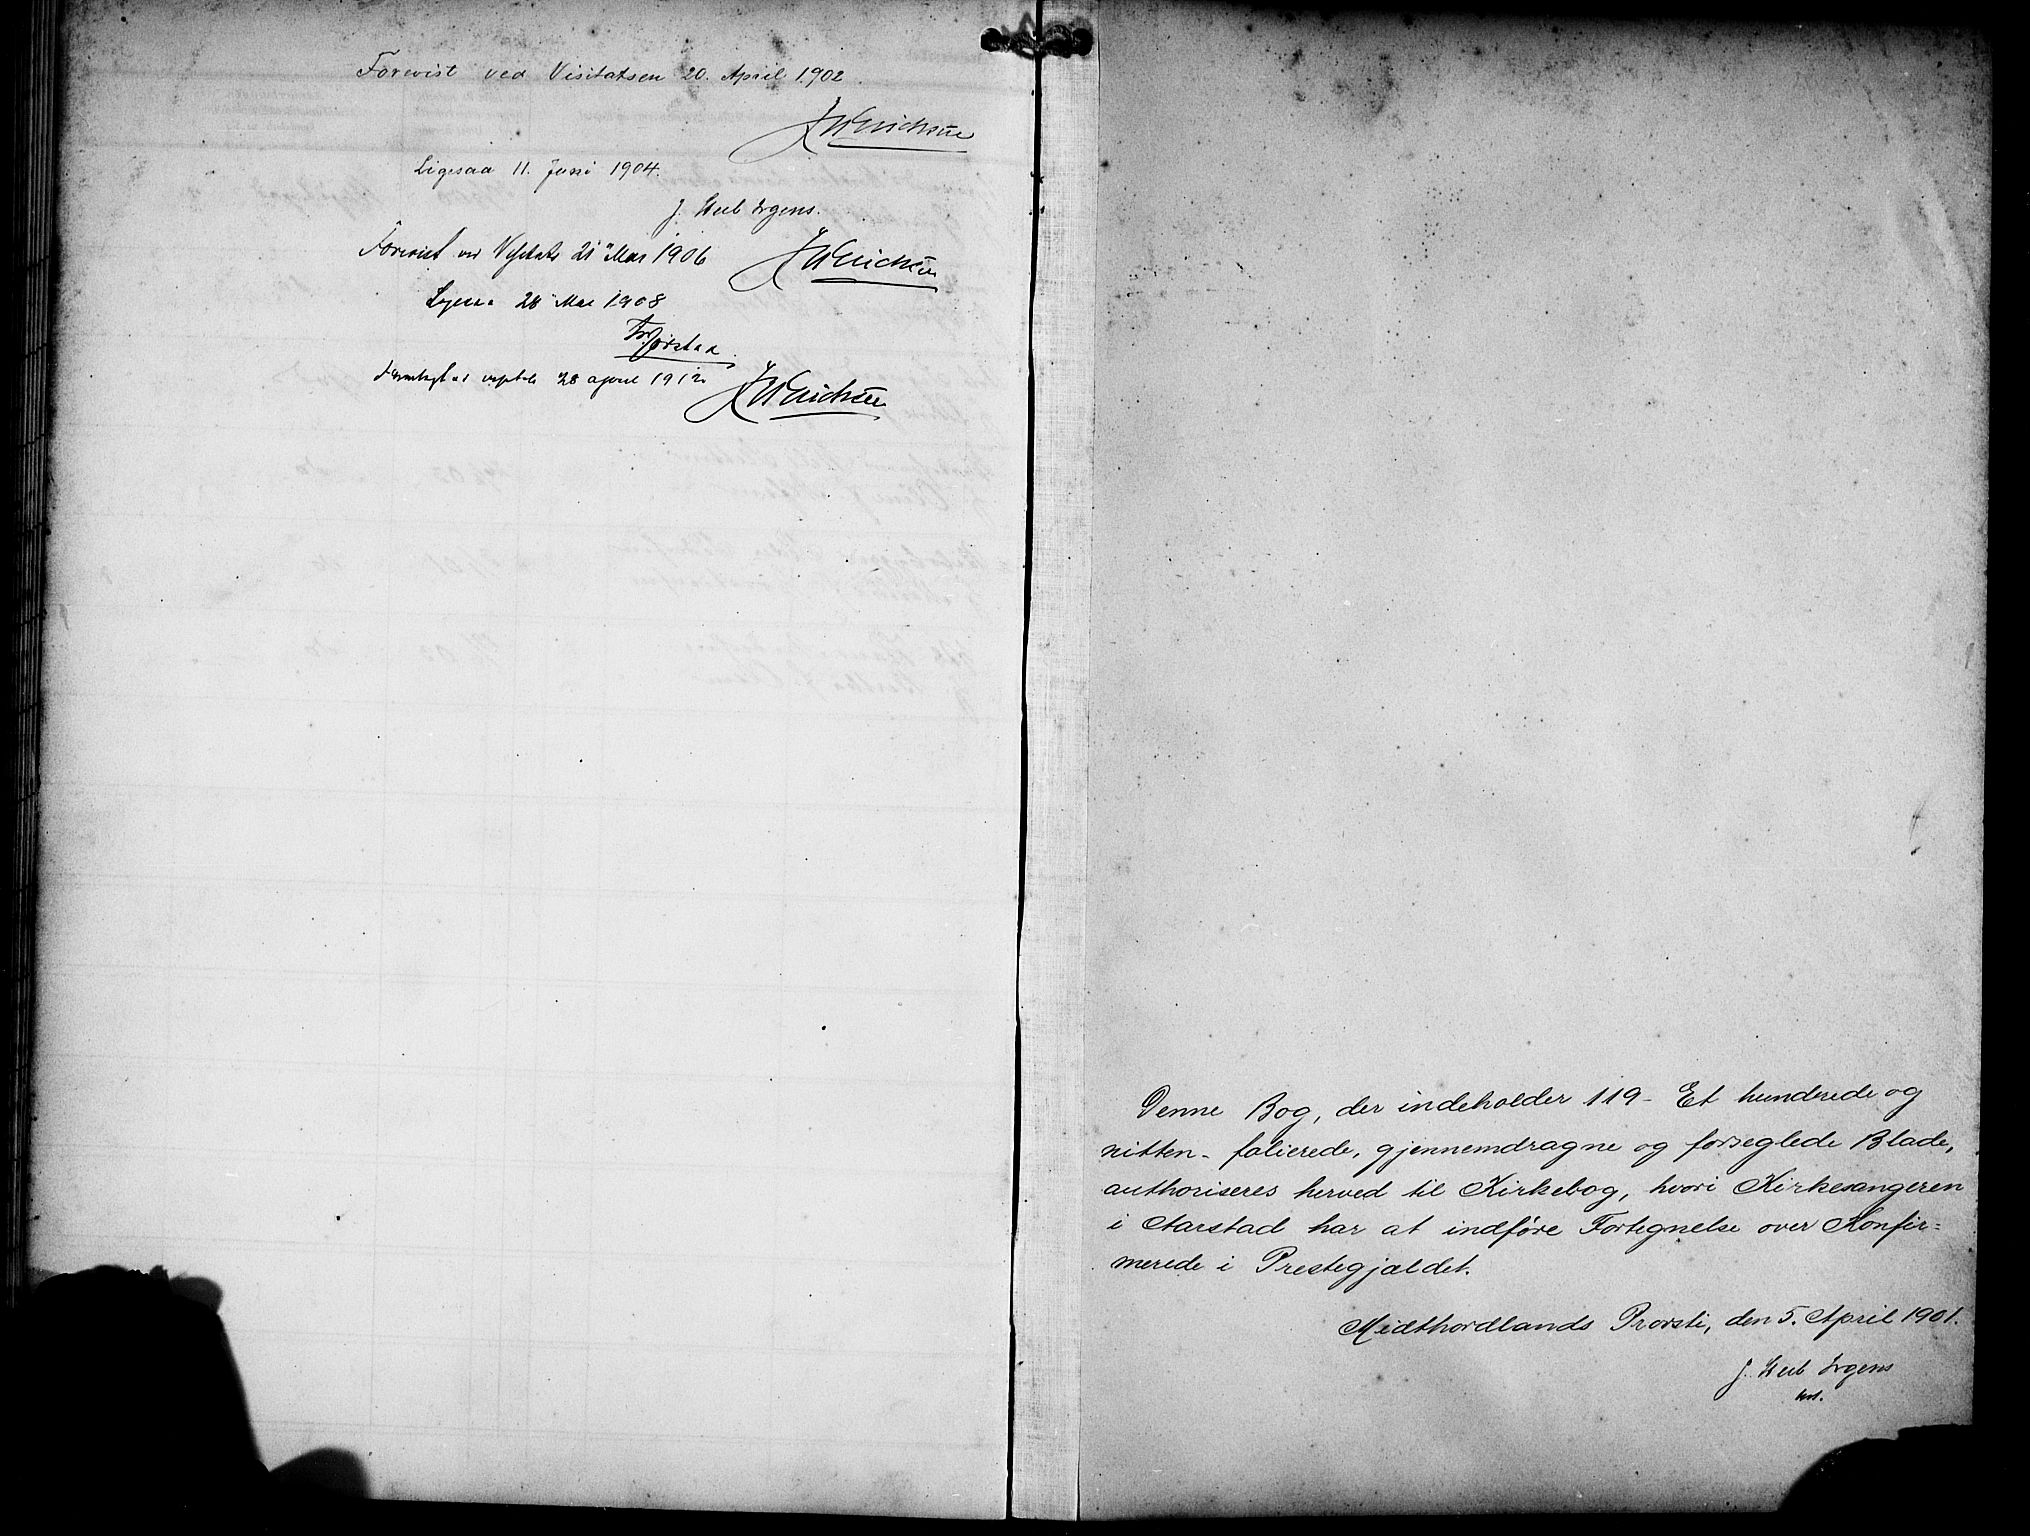 Forevist ved Visitatsen 20. April 1902.
J W Erichsen
Ligesaa 11. Juni 1904.
J. Web Irgens.
Forevist ved Visitats 21 Mai 1906 J W Erichsen
28 Mai 1908
28 april 1912 J W Erichsen
Denne Bog, der indeholder 119 - Et hundrede og
nitten - folierede, gjennemdragne og forseglede Blade,
authoriseres herved til Kirkebog, hvori Kirkesangeren
i Aarstad har at indføre Fortegnelse over Konfir=
merede i Prestegjældet.
Midthordlands Provsti, den 5. April 1901.
J. Web Irgens
kst.